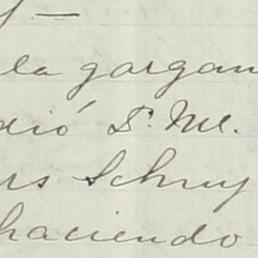 la gargan
dió D. M.
rs Schuy
haciendo